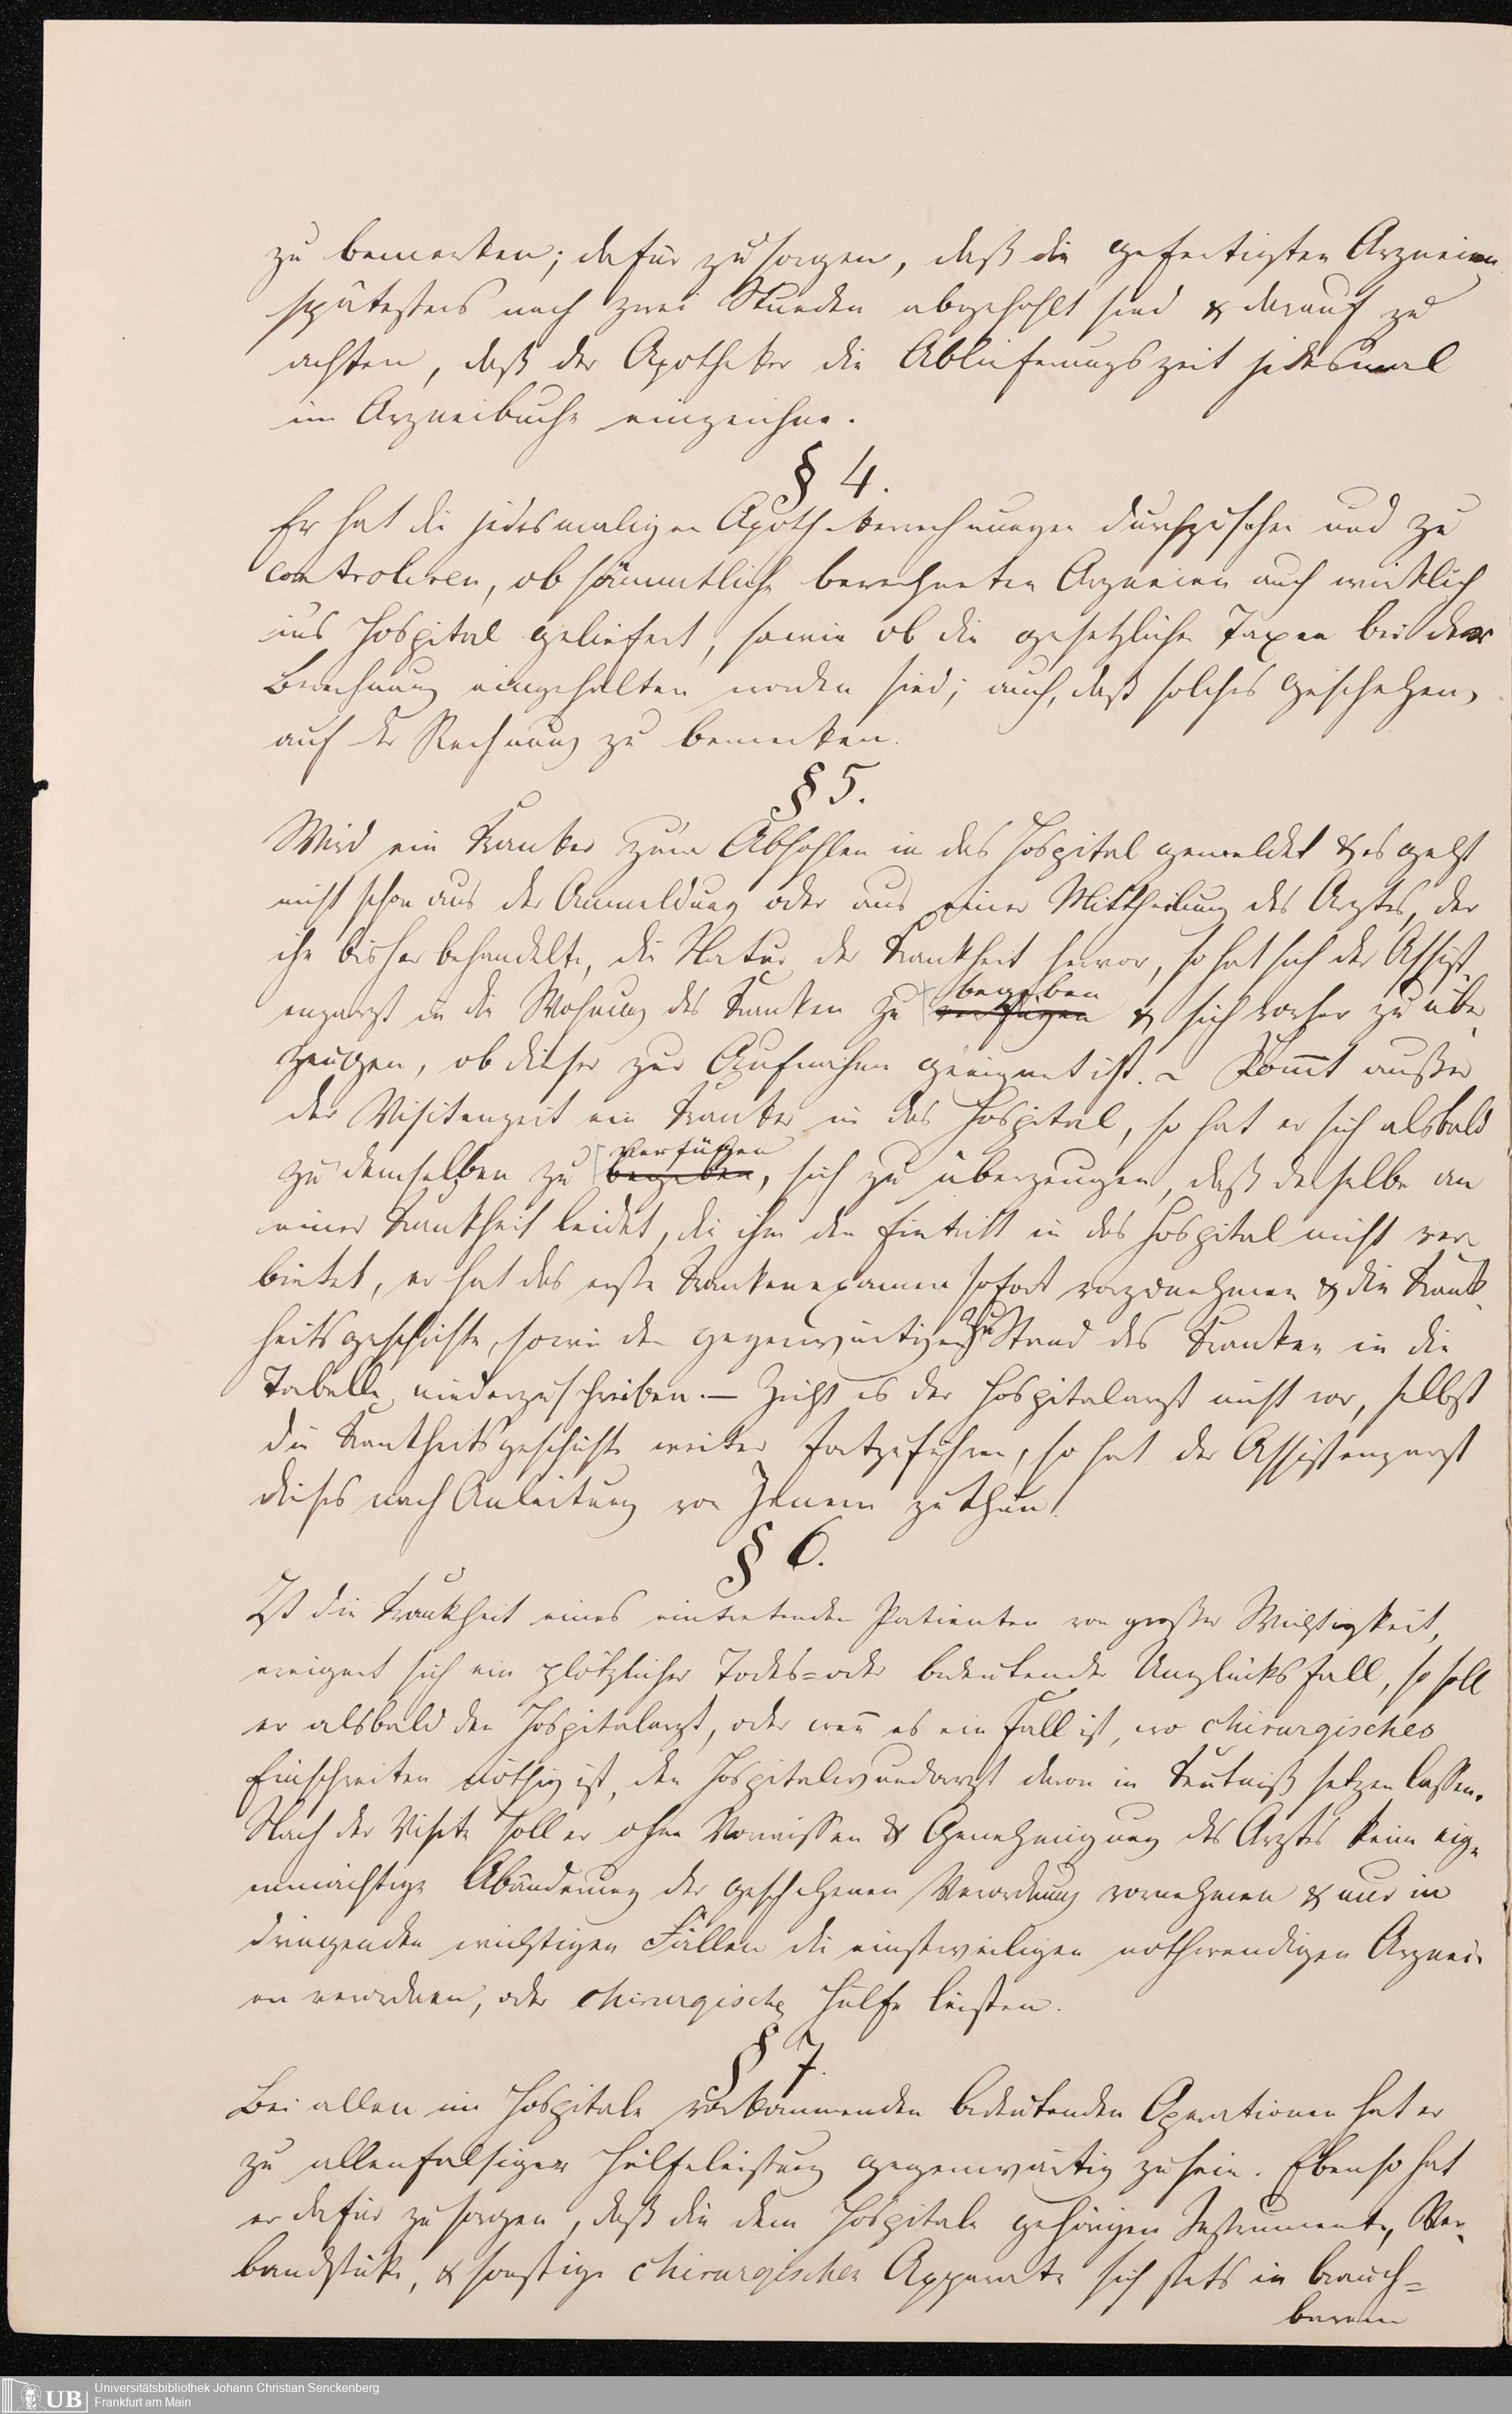 zu bemerken; dafür zu sorgen, daß die gefertigten Arzneien
spätestens nach zwei Stunden abgehohlt sind & darauf zu
achten, daß der Apotheker die Ablieferungszeit jedesmal
im Arzneibuche einzeichne.
§ 4.
Er hat die jedesmaligen Apothekerrechnungen durchzusehen und zu
controliren, ob sämmtliche berechneten Arzneien auch wirklich
ins Hospital geliefert, sowie ob die gesetzlichen Taxen bei der
Berechnung eingehalten worden sind; auch, daß solches geschehen,
auf der Rechnung zu bemerken.
§ 5.
Wird ein Kranker zum Abhohlen in das Hospital gemeldet & es geht
nicht schon aus der Anmeldung oder aus einer Mittheilung des Arztes, der
ihn bisher behandelte, die Natur der Krankheit hervor, so hat sich der Assist-
enzarzt in die Wohnung des Kranken zu verfügen begeben & sich vorher zu über-
zeugen, ob dieser zur Aufnahme geeignet ist. – Kom̅t außer
der Visitenzeit ein Kranker in das Hospital, so hat er sich alsbald
zu demselben zu begeben verfügen, sich zu überzeugen, daß derselbe an
einer Krankheit leidet, die ihm den Eintritt in das Hospital nicht ver-
bietet, er hat das erste Krankenexamen sofort vorzunehmen & die Krank-
heitsgeschichte, sowie den gegenwärtigen Zustand des Kranken in die
Tabelle niederzuschreiben. — Zieht es der Hospitalarzt nicht vor, selbst
die Krankheitsgeschichte weiter fortzuführen, so hat der Assistenzarzt
dieses nach Anleitung von Jenem zu thun.
§ 6.
Ist die Krankheit eines eintretenden Patienten von großer Wichtigkeit,
ereignet sich ein plötzlicher Todes= oder bedeutender Unglücksfall, so soll
er alsbald den Hospitalarzt, oder wen̅ es ein Fall ist, wo chirurgisches
Einschreiten nöthig ist, den Hospitalwundarzt davon in Kentniß setzen lassen.
Nach der Visite soll er ohne Vorwissen & Genehmigung des Arztes keine eig-
enmächtige Abänderung der geschehenen Verordnung vornehmen & nur in
dringenden wichtigen Fällen die einstweiligen nothwendigen Arznei-
en verordnen, oder chirurgische Hülfe leisten.
§ 7.
Bei allen im Hospitale vorkommenden bedeutenden Operationen hat er
zu allenfalsiger Hülfeleistung gegenwärtig zu sein. Ebenso hat
er dafür zu sorgen, daß die dem Hospitale gehörigen Instrumente, Ver-
bandstücke, & sonstige chirurgischen Apparate sich stets in brauch=
barem
Universitätsbibliothek Johann Christian Senckenberg
Frankfurt am Main
UB